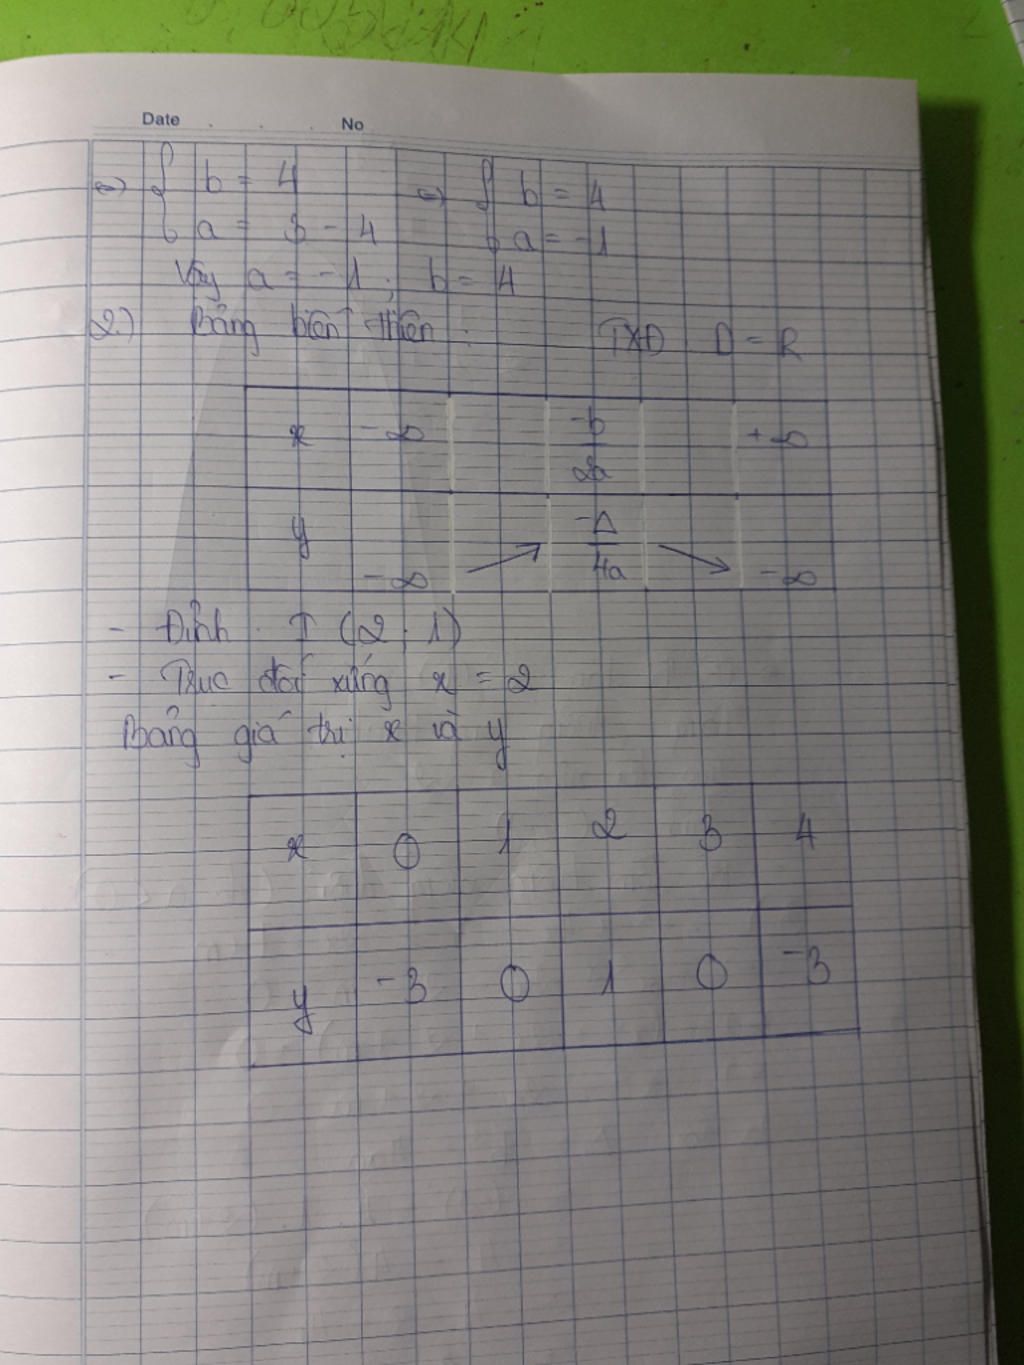 Date . . . No
⇔ { b = 4 ⇔ { b = 4
a = 3 - 4 a = -1
Vậy a = -1 ; b = 4
2) Bảng biến thiên : TXĐ D = R
x -∞ -b/2a +∞
y -∞ ↗ -Δ/4a ↘ -∞
- Đỉnh I (2 ; 1)
- Trục đối xứng x = 2
Bảng giá trị x và y
x 0 1 2 3 4
y -3 0 1 0 -3